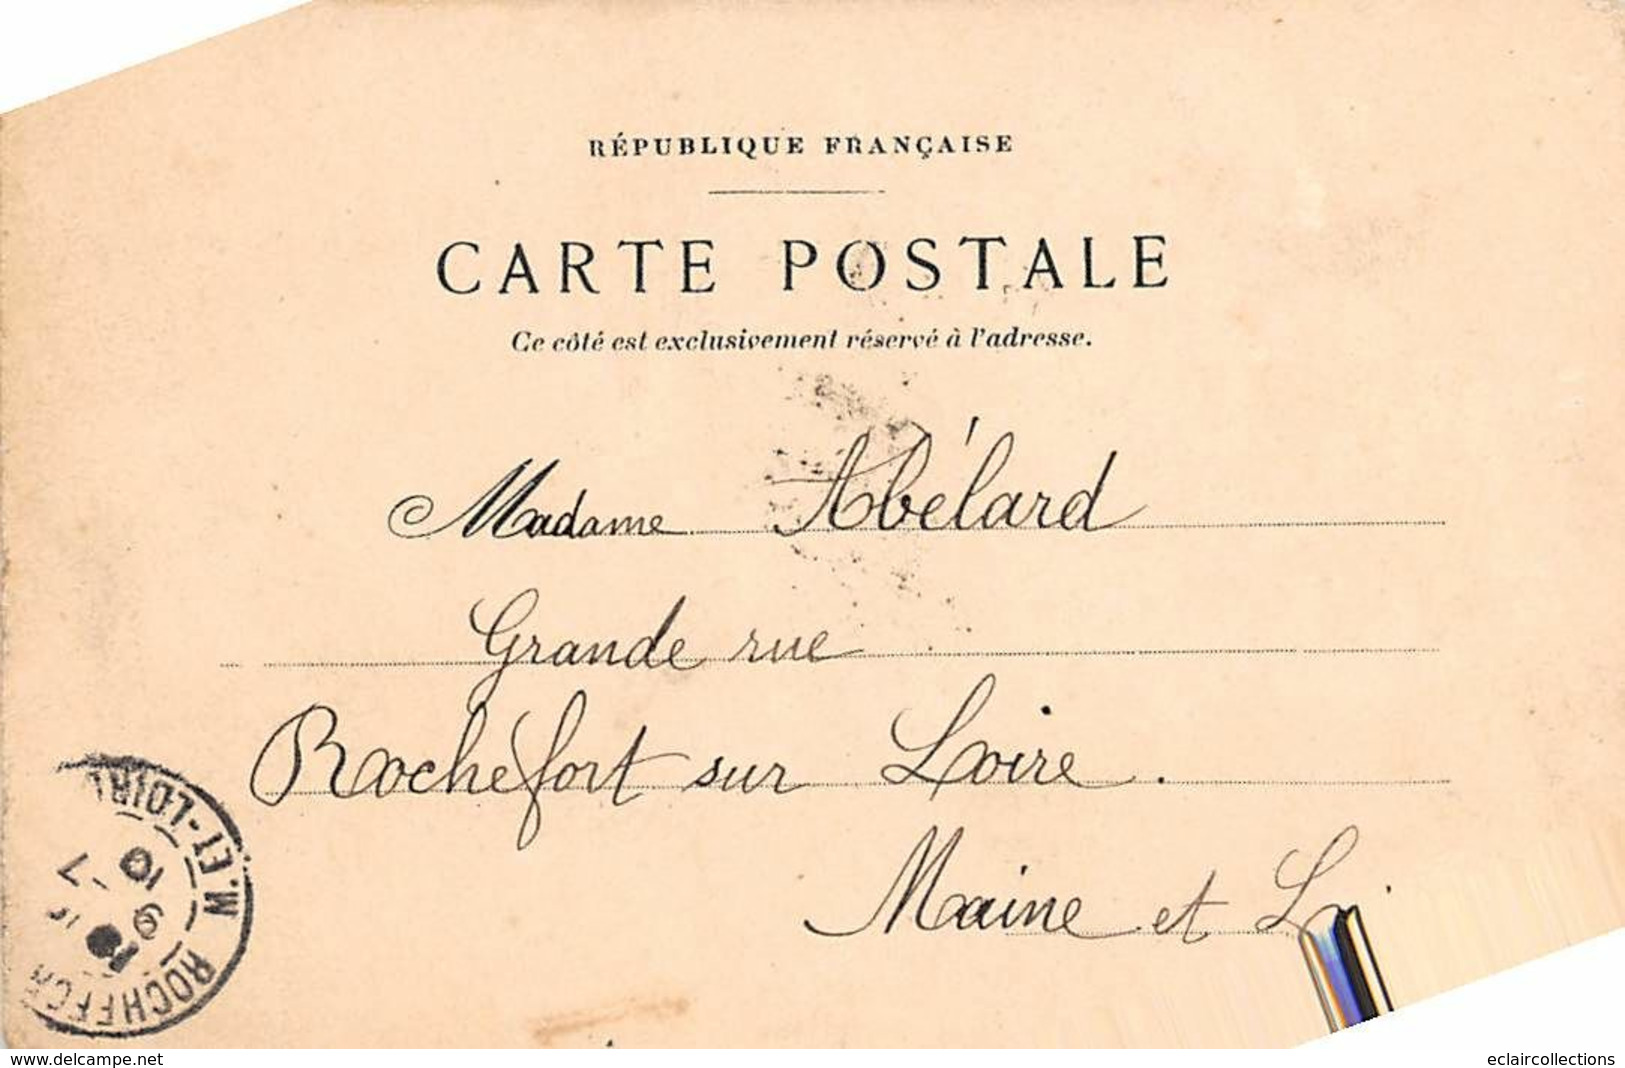 RÉPUBLIQUE FRANÇAISE
CARTE POSTALE
Ce côté est exclusivement réservé à l'adresse.
Madame Abélard
Grande rue
Rochefort sur Loire.
Maine et
M.ET-LOIRE
www.delcampe.net
eclaircollections